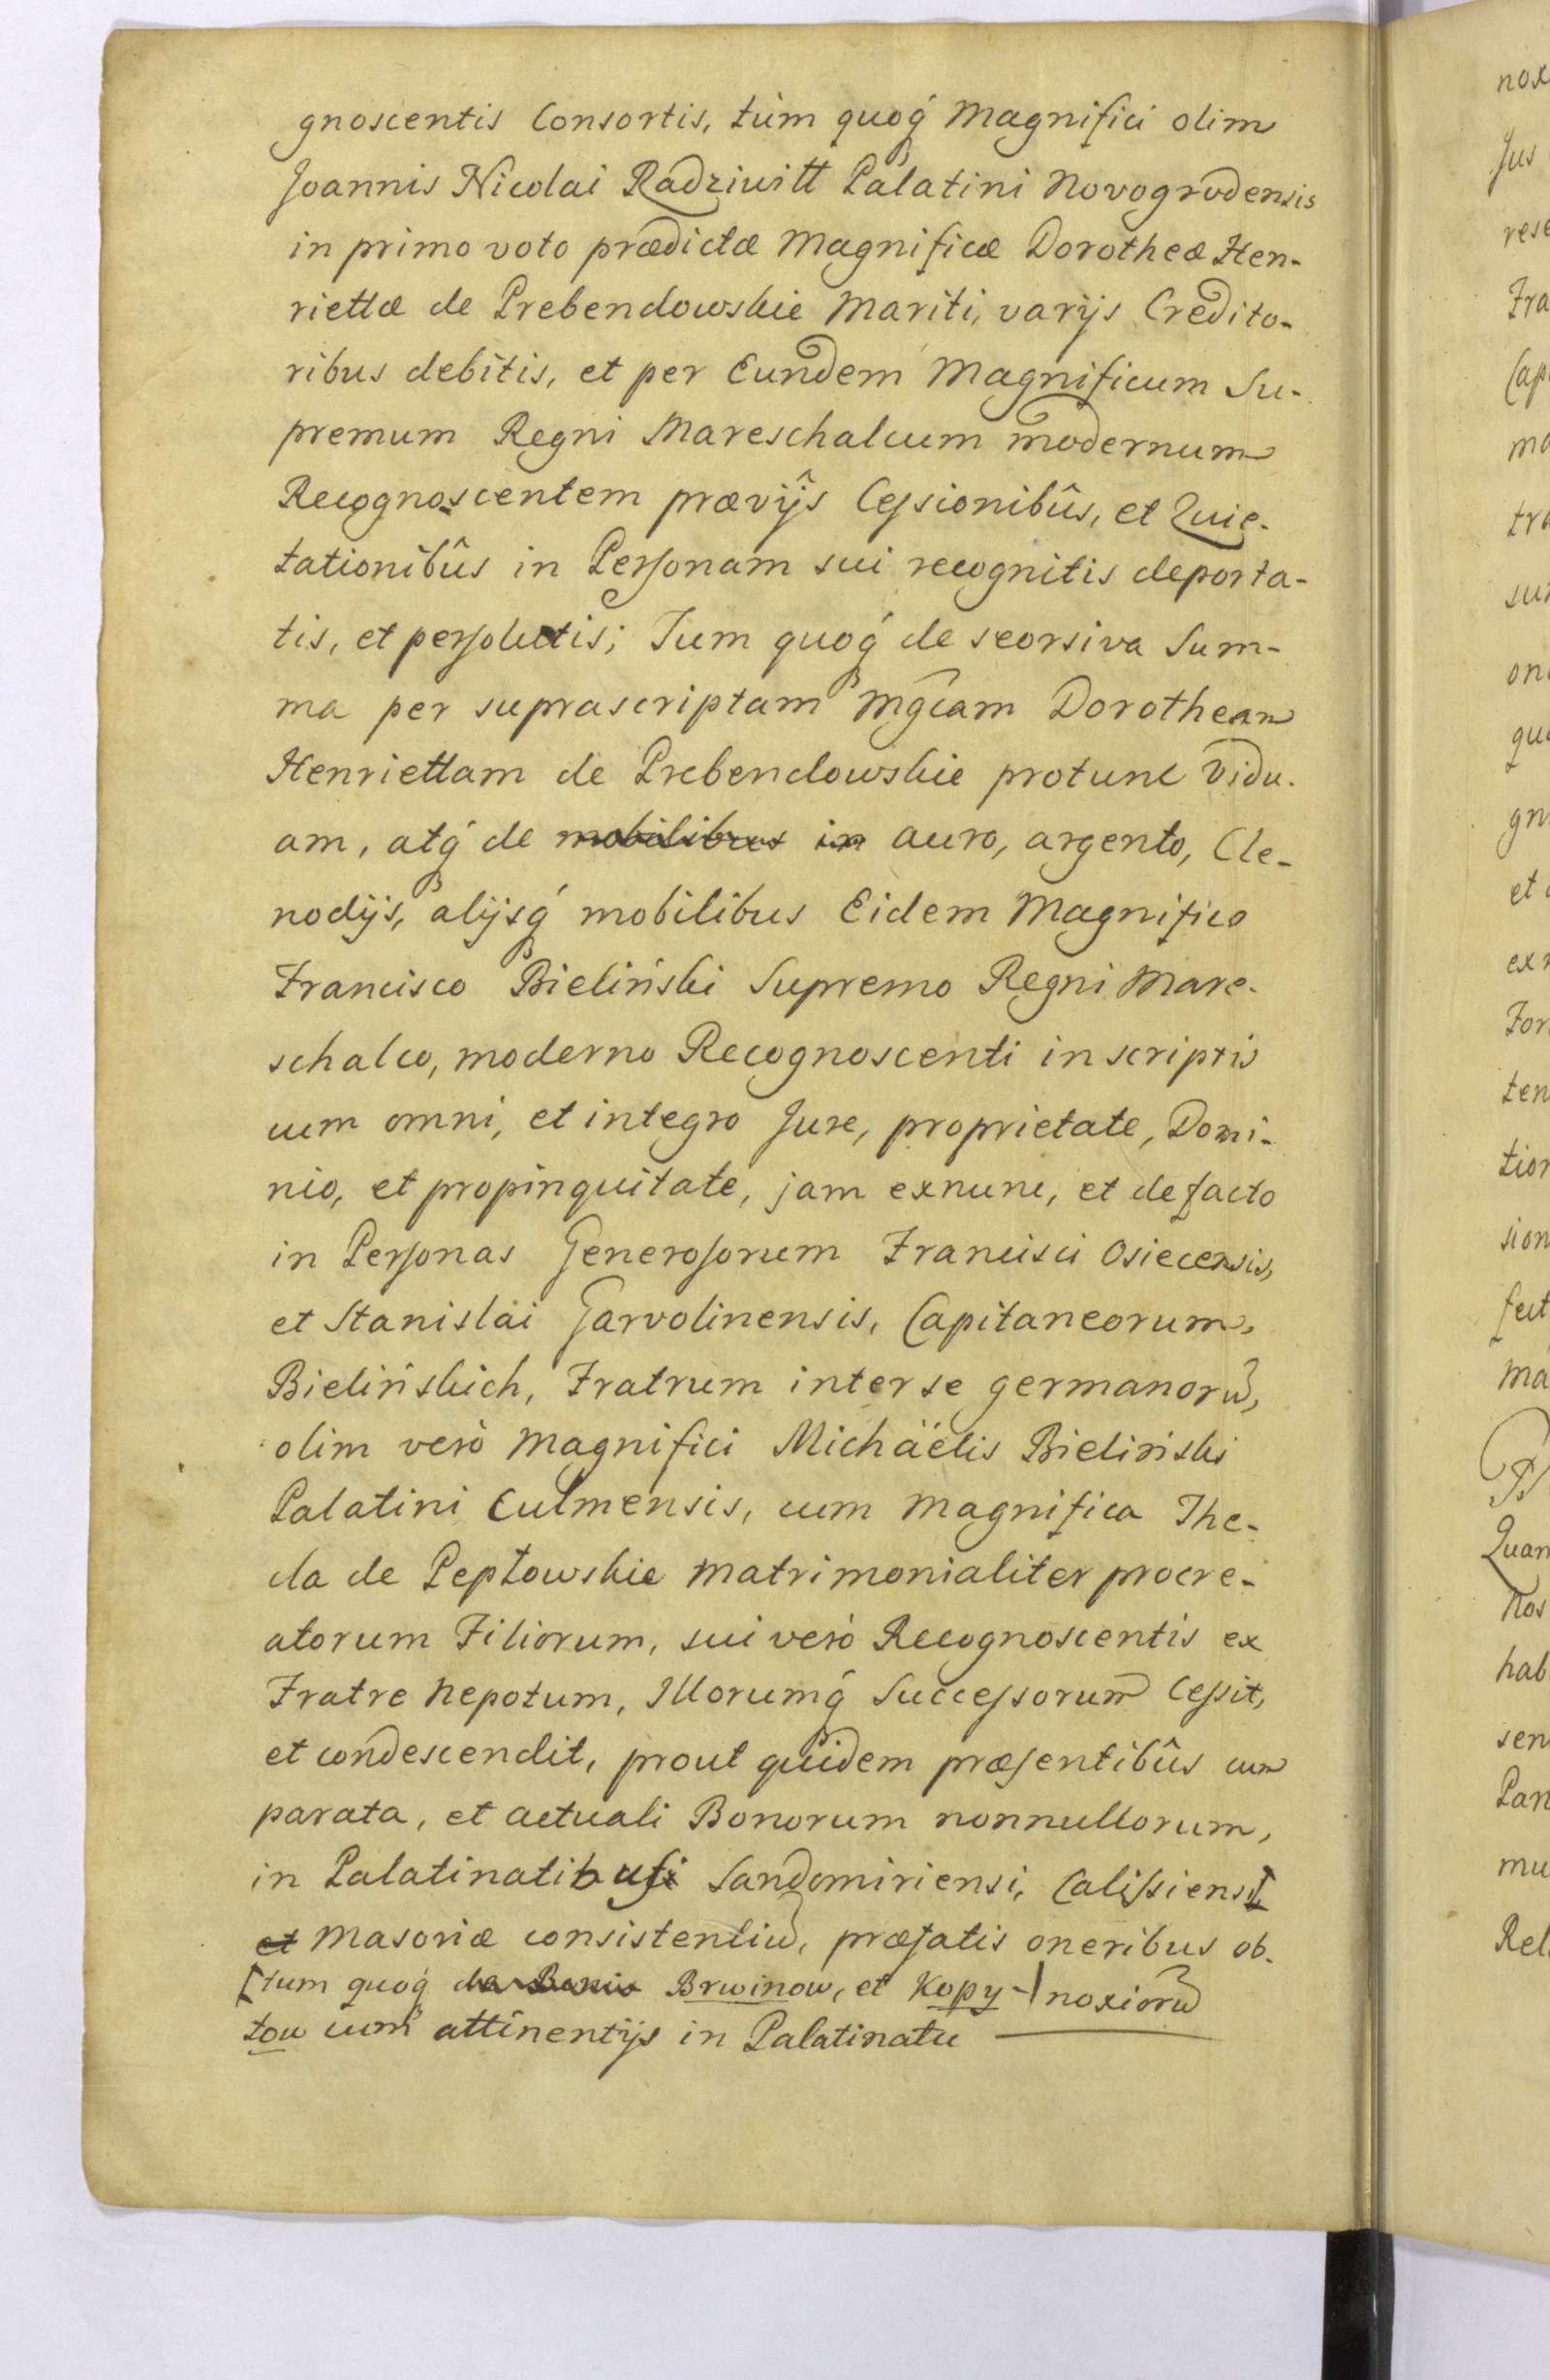 gnoscentis Consortis, tùm quoq́ Magnifici olim
Joannis Nicolai Radziwiłł Palatini Novogrodensis
in primo voto prædictæ Magnificæ Dorotheæ Hen-
riettæ de Prebendowskie Mariti, varijs Credito-
ribus debitis, et per Eundem Magnificum Su-
premum Regni Mareschalcum modernum
Recognoscentem prævijs Cessionibûs, et Quie-
tationibûs in Personam sui recognitis deporta-
tis, et persolutis; Tum quoq́ de seorsiva Sum-
ma per suprascriptam Mgcam Dorotheam
Henriettam de Prebendowskie protunc Vidu-
am, atq́ de mobilibus in auro, argento, Cle-
nodijs, alijsq́ mobilibus Eidem Magnifico
Francisco Bieliński Supremo Regni Mare-
schalco, moderno Recognoscenti inscriptis
cum omni, et integro Jure, proprietate, Domi-
nio, et propinquitate, jam exnunc, et de facto
in Personas Generosorum Francisci Osiecensis,
et Stanislai Garvolinensis, Capitaneorum,
Bielińskich, Fratrum inter se germanorũ,
olim verò Magnifici Michäelis Bieliński
Palatini Culmensis, cum Magnifica The-
cla de Pepłowskie matrimonialiter procre-
atorum Filiorum, sui verò Recognoscentis ex
Fratre Nepotum, Illorumq́ Successorum Cessit,
et condescendit, prout quidem præsentibûs cum
parata, et actuali Bonorum nonnullorum,
in Palatinatibus Sandomiriensi, Calissiensi
et Masoviæ consistentiũ, præfatis oneribus ob-
[tum quoq́ de Bonis Brwinow, et Kopy-] noxiorũ
tow cum attinentijs in Palatinatu
nox
Jus
rese
Fra
Cap
ma
tra
sun
on
qu
gn
et
ex
For
ten
tion
sion
fect
ma
Quan
Nos
hab
sen
Pan
mu
Rel